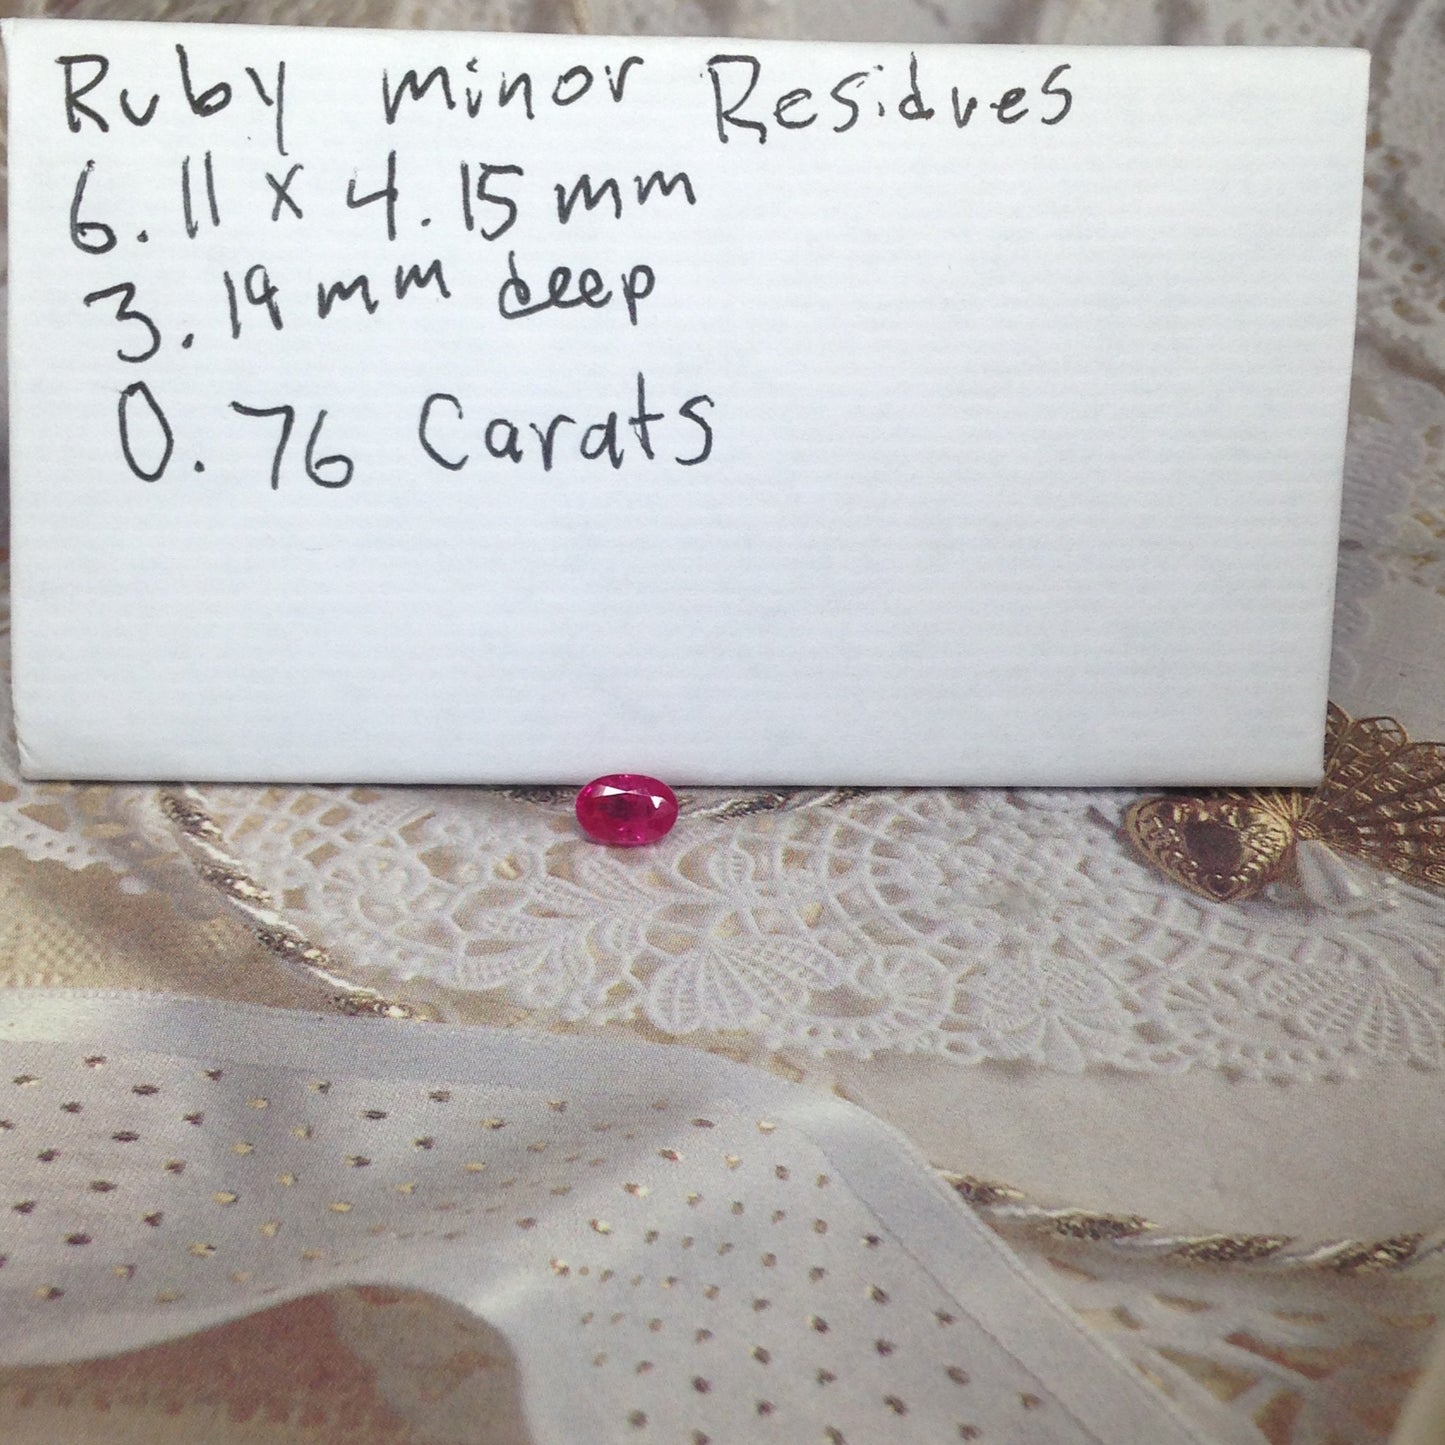 Ruby minor Residues
6.11 x 4.15 mm
3.19 mm deep
0.76 Carats